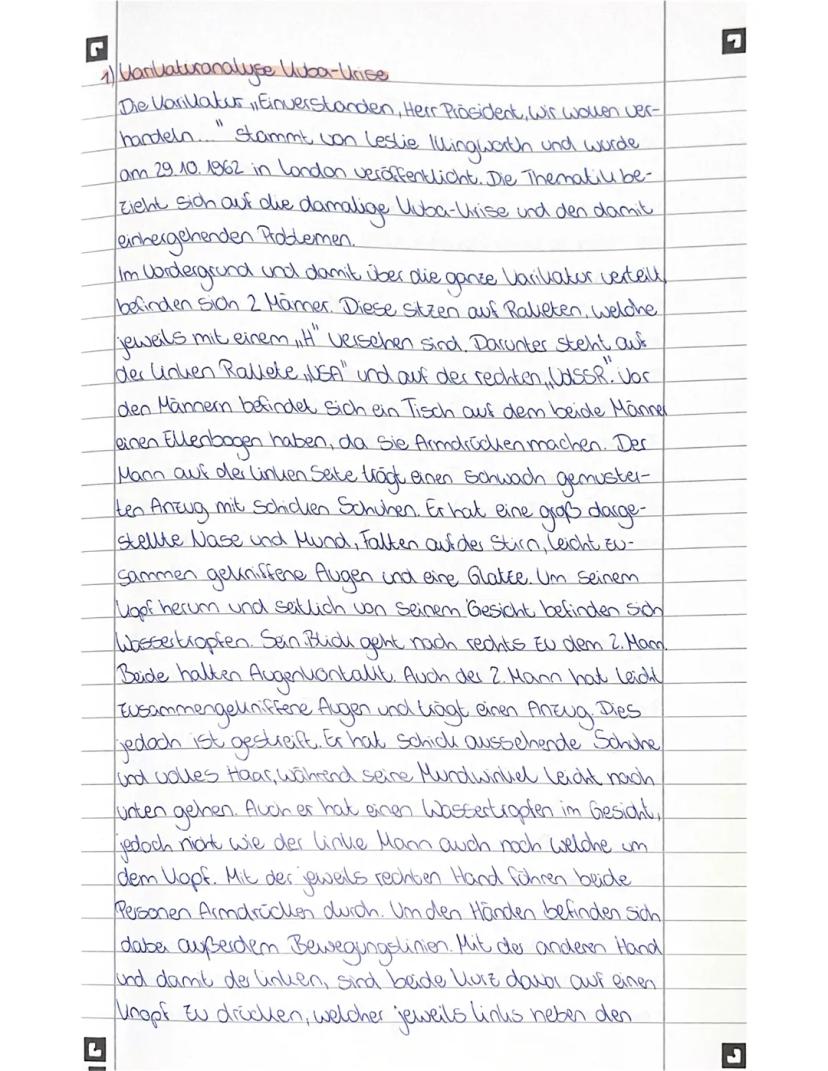 1) Karikaturanalyse Kuba-Krise
Die Karikatur „Einverstanden, Herr Präsident, wir wollen ver-
handeln..." stammt von Leslie Illingworth und wurde
am 29.10.1962 in London veröffentlicht. Die Thematik be-
zieht sich auf die damalige Kuba-Krise und den damit
einhergehenden Problemen.
Im Vordergrund und damit über die ganze Karikatur verteilt,
befinden sich 2 Männer. Diese sitzen auf Raketen, welche
jeweils mit einem „H" versehen sind. Darunter steht auf
der linken Rakete „USA" und auf der rechten „UdSSR". Vor
den Männern befindet sich ein Tisch auf dem beide Männer
einen Ellenbogen haben, da sie Armdrücken machen. Der
Mann auf der linken Seite trägt einen schwach gemuster-
ten Anzug mit schicken Schuhen. Er hat eine groß darge-
stellte Nase und Mund, Falten auf der Stirn, leicht zu-
sammen gekniffene Augen und eine Glatze. Um seinem
Kopf herum und seitlich von seinem Gesicht befinden sich
Wassertropfen. Sein Blick geht nach rechts zu dem 2. Mann.
Beide halten Augenkontakt. Auch der 2. Mann hat leicht
zusammengekniffene Augen und trägt einen Anzug. Dies
jedoch ist gestreift. Er hat schick aussehende Schuhe
und volles Haar, während seine Mundwinkel leicht nach
unten gehen. Auch er hat einen Wassertropfen im Gesicht,
jedoch nicht wie der linke Mann auch noch welche um
dem Kopf. Mit der jeweils rechten Hand führen beide
Personen Armdrücken durch. Um den Händen befinden sich
dabei außerdem Bewegungslinien. Mit der anderen Hand
und damit der linken, sind beide kurz davor auf einen
Knopf zu drücken, welcher jeweils links neben den